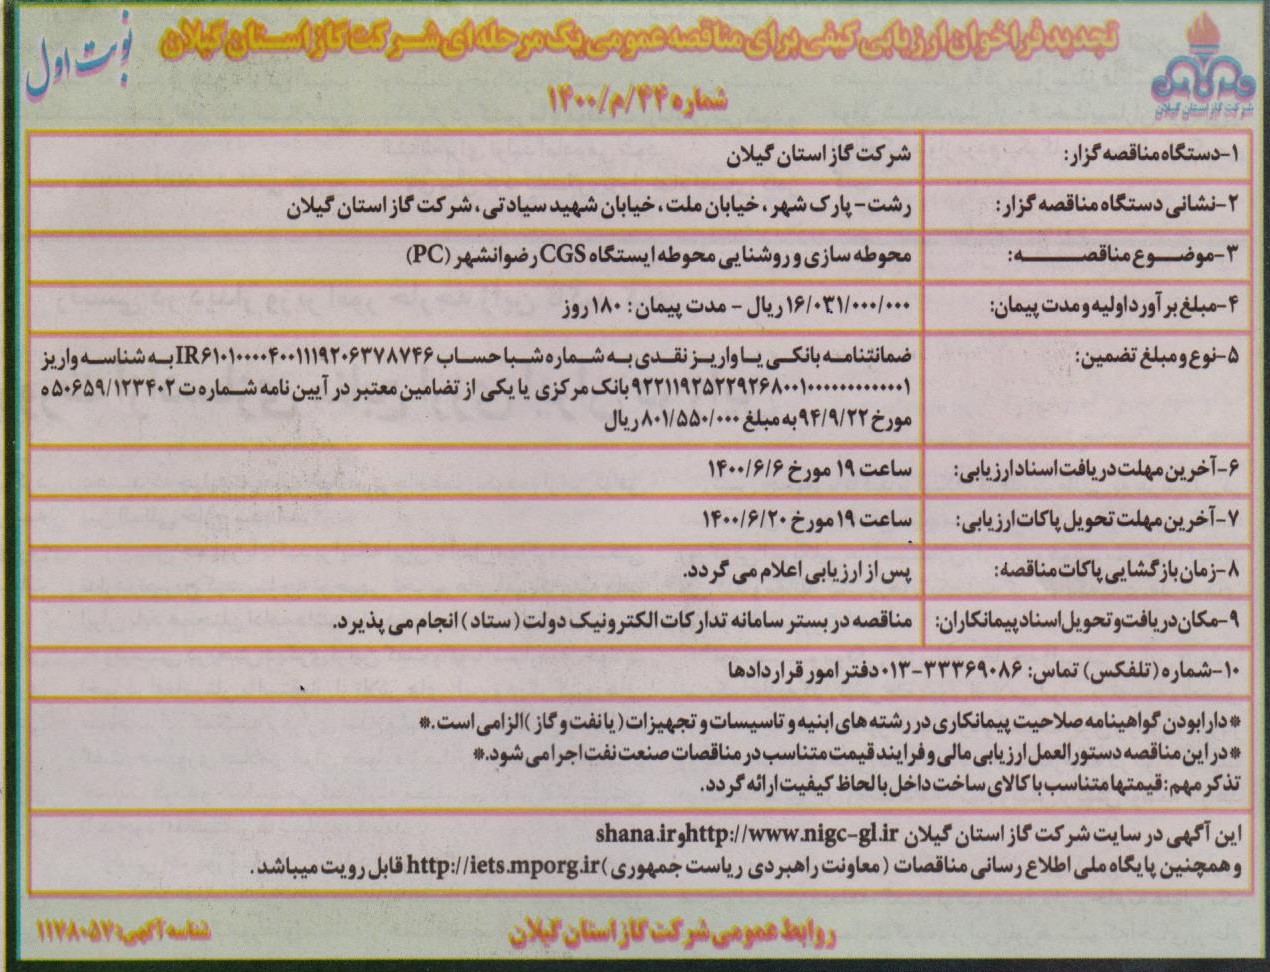 تجدید فراخوان ارزیابی کیفی برای مناقصه عمومی یک مرحله ای شرکت گاز استان گیلان
نوبت اول
شماره ۴۴/م/۱۴۰۰
شرکت گاز استان گیلان
۱-دستگاه مناقصه گزار: شرکت گاز استان گیلان
۲-نشانی دستگاه مناقصه گزار: رشت- پارک شهر، خیابان ملت، خیابان شهید سیادتی، شرکت گاز استان گیلان
۳-موضوع مناقصه: محوطه سازی و روشنایی محوطه ایستگاه CGS رضوانشهر (PC)
۴-مبلغ برآورد اولیه و مدت پیمان: ۱۶/۰۳۱/۰۰۰/۰۰۰ ریال - مدت پیمان: ۱۸۰ روز
۵-نوع و مبلغ تضمین: ضمانتنامه بانکی یا واریز نقدی به شماره شبا حساب IR۶۱۰۱۰۰۰۰۴۰۰۱۱۱۹۲۰۶۳۷۸۷۴۶ به شناسه واریز
۹۲۲۱۱۹۲۵۲۲۹۲۶۸۰۰۱۰۰۰۰۰۰۰۰۰۰۰۱ بانک مرکزی یا یکی از تضامین معتبر در آیین نامه شماره ۱۲۳۴۰۲/ت۵۰۶۵۹ه
مورخ ۹۴/۹/۲۲ به مبلغ ۸۰۱/۵۵۰/۰۰۰ ریال
۶-آخرین مهلت دریافت اسناد ارزیابی: ساعت ۱۹ مورخ ۱۴۰۰/۶/۶
۷-آخرین مهلت تحویل پاکات ارزیابی: ساعت ۱۹ مورخ ۱۴۰۰/۶/۲۰
۸-زمان بازگشایی پاکات مناقصه: پس از ارزیابی اعلام می گردد.
۹-مکان دریافت و تحویل اسناد پیمانکاران: مناقصه در بستر سامانه تدارکات الکترونیک دولت (ستاد) انجام می پذیرد.
۱۰-شماره (تلفکس) تماس: ۳۳۳۶۹۰۸۶-۰۱۳ دفتر امور قراردادها
*دارا بودن گواهینامه صلاحیت پیمانکاری در رشته های ابنیه و تاسیسات و تجهیزات (یا نفت و گاز) الزامی است.*
*در این مناقصه دستورالعمل ارزیابی مالی و فرایند قیمت متناسب در مناقصات صنعت نفت اجرا می شود.*
تذکر مهم: قیمتها متناسب با کالای ساخت داخل با لحاظ کیفیت ارائه گردد.
این آگهی در سایت شرکت گاز استان گیلان http://www.nigc-gl.ir و shana.ir
و همچنین پایگاه ملی اطلاع رسانی مناقصات (معاونت راهبردی ریاست جمهوری) http://iets.mporg.ir قابل رویت میباشد.
روابط عمومی شرکت گاز استان گیلان
شناسه آگهی: ۱۱۷۸۰۵۷